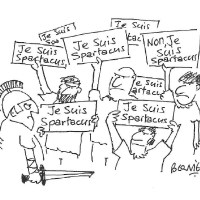 Je Suis
Spa
tacus
Je Suis
Spartacus
Je Suis
Spartacus
Non, Je
Suis
Spartacus
Je Suis
artacus
Je Suis
Spartacus
Je Suis
Spartacus